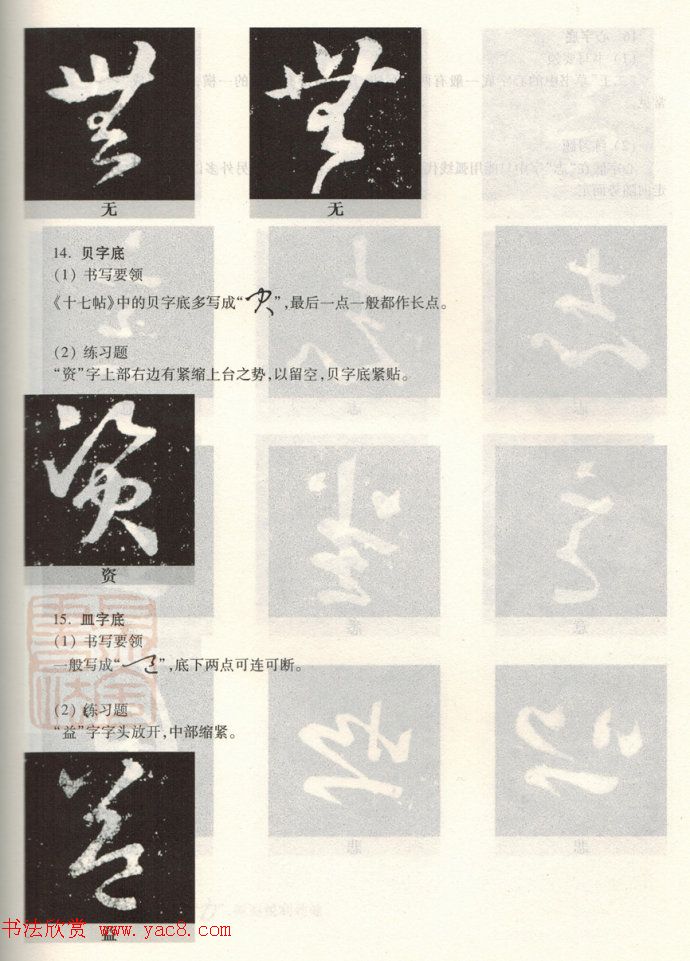 无 无
14. 贝字底
(1) 书写要领
《十七帖》中的贝字底多写成“”,最后一点一般都作长点。
(2) 练习题
“资”字上部右边有紧缩上台之势,以留空,贝字底紧贴。
资
15. 皿字底
(1) 书写要领
一般写成“”,底下两点可连可断。
(2) 练习题
“益”字字头放开,中部缩紧。
益
书法欣赏 www.yac8.com